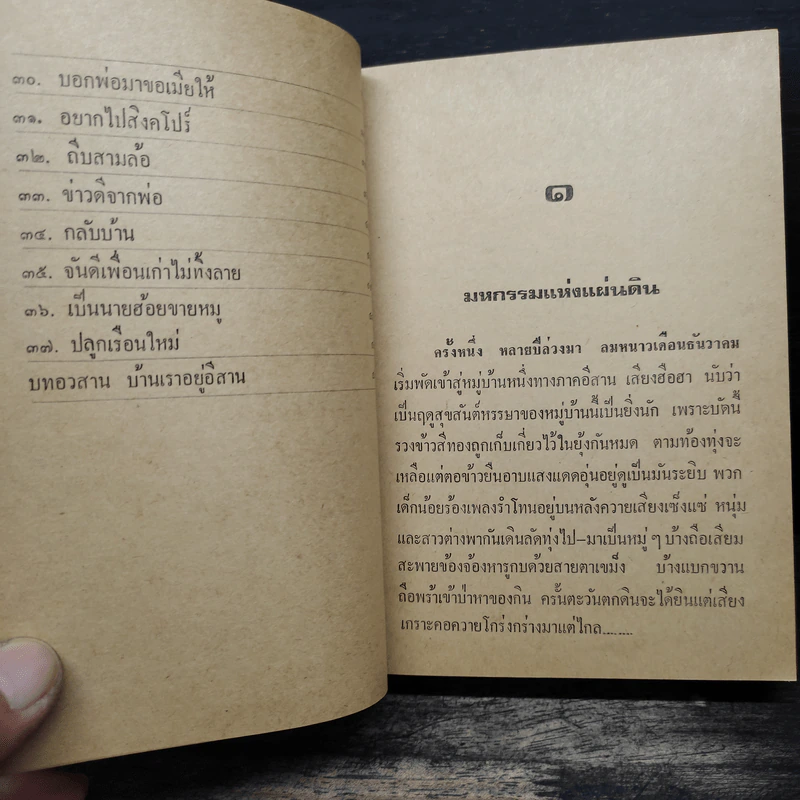 ๓๐. บอกพ่อมาขอเมียให้
๓๑. อยากไปสิงคโปร์
๓๒. ถีบสามล้อ
๓๓. ข่าวดีจากพ่อ
๓๔. กลับบ้าน
๓๕. จันดีเพื่อนเก่าไม่ทิ้งลาย
๓๖. เป็นนายฮ้อยขายหมู
๓๗. ปลูกเรือนใหม่
บทอวสาน บ้านเราอยู่อีสาน
๑
มหกรรมแห่งแผ่นดิน
ครั้งหนึ่ง หลายปีล่วงมา ลมหนาวเดือนธันวาคม
เริ่มพัดเข้าสู่หมู่บ้านหนึ่งทางภาคอีสาน เสียงฮือฮา นับว่า
เป็นฤดูสุขสันต์หรรษาของหมู่บ้านนี้เป็นยิ่งนัก เพราะบัดนี้
รวงข้าวสีทองถูกเก็บเกี่ยวไว้ในยุ้งกันหมด ตามท้องทุ่งจะ
เหลือแต่ตอข้าวยืนอาบแสงแดดอุ่นอยู่ดูเป็นมันระยิบ พวก
เด็กน้อยร้องเพลงรำโทนอยู่บนหลังควายเสียงเซ็งแซ่ หนุ่ม
และสาวต่างพากันเดินลัดทุ่งไป–มาเป็นหมู่ ๆ บ้างถือเสียม
สะพายข้องจ้องหารูกบด้วยสายตาเขม็ง บ้างแบกขวาน
ถือพร้าเข้าป่าหาของกิน ครั้นตะวันตกดินจะได้ยินแต่เสียง
เกราะคอควายโกร่งกร่างมาแต่ไกล........